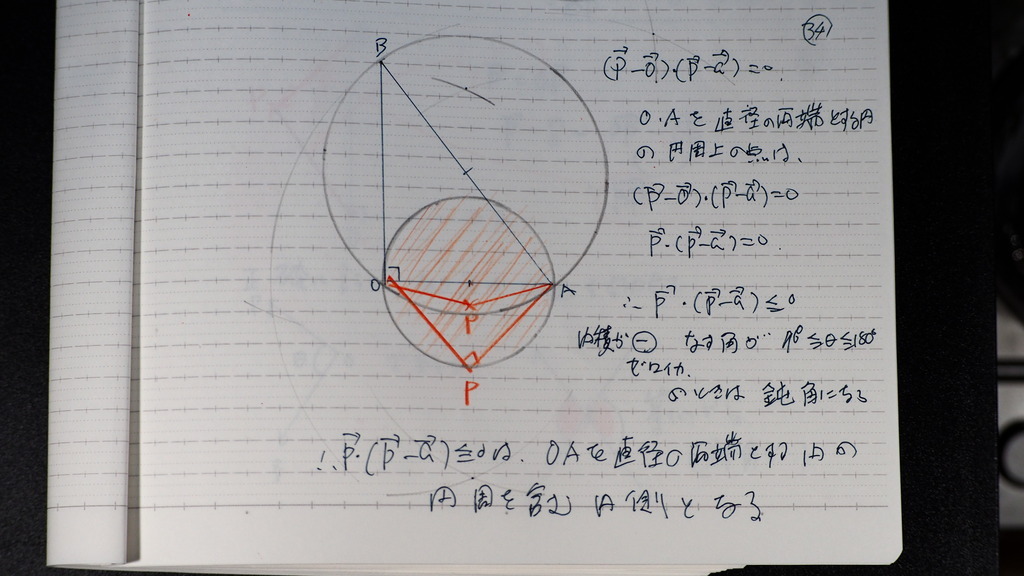 34
(p⃗-o⃗)・(p⃗-a⃗)=0.
O.Aを直径の両端とする円
の円周上の点は、
(p⃗-o⃗)・(p⃗-a⃗)=0
p⃗・(p⃗-a⃗)=0.
∴ p⃗・(p⃗-a⃗)≦0
内積が㊀ なす角が 90°≦θ≦180°
ゼロイカ.
のときは 鈍角になる
∴ p⃗・(p⃗-a⃗)≦0は. OAを直径の両端とする円の
円周を含む内側となる
B
O
A
P
P